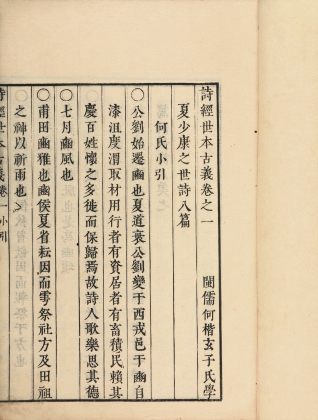 詩經世本古義卷之一
閩儒何楷玄子氏學
夏少康之世詩八篇
何氏小引
○公劉始遷豳也夏道衰公劉變于西戎邑于豳自
漆沮度渭取材用行者有資居者有畜積民賴其
慶百姓懷之多徙而保歸焉故詩人歌樂思其德
○七月豳風也
○甫田豳雅也豳侯夏省耘因而雩祭社方及田祖
之神以祈雨也
詩經世本古義卷一小引